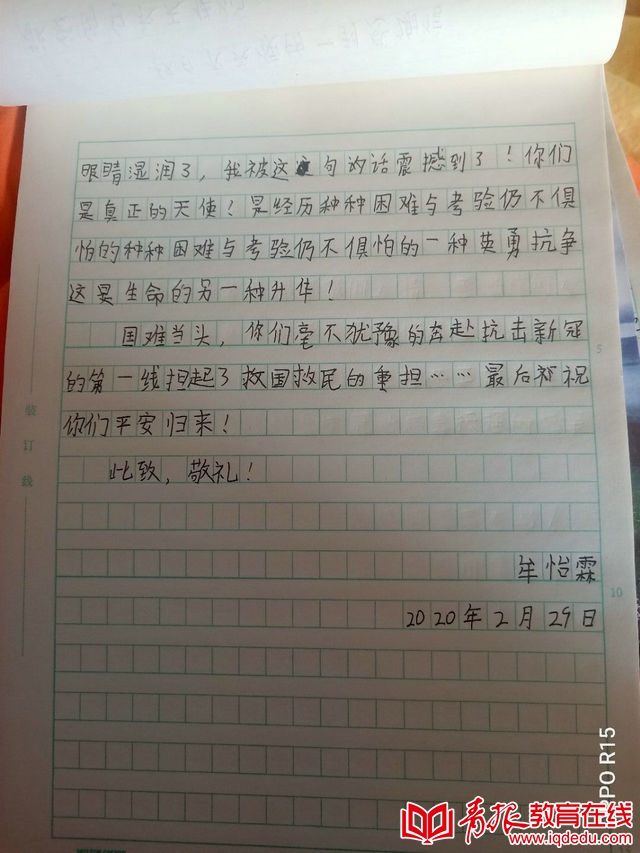 眼睛湿润了,我被这句的话震撼到了!你们
是真正的天使!是经历种种困难与考验仍不俱
怕的种种困难与考验仍不俱怕的一种英勇抗争
这是生命的另一种升华!
国难当头,你们毫不犹豫的奔赴抗击新冠
的第一线担起了救国救民的重担……最后祈祝
你们平安归来!
此致,敬礼!
牟怡霖
2020年2月29日
装订线
5
10
PO R15
青报教育在线
www.iqdedu.com